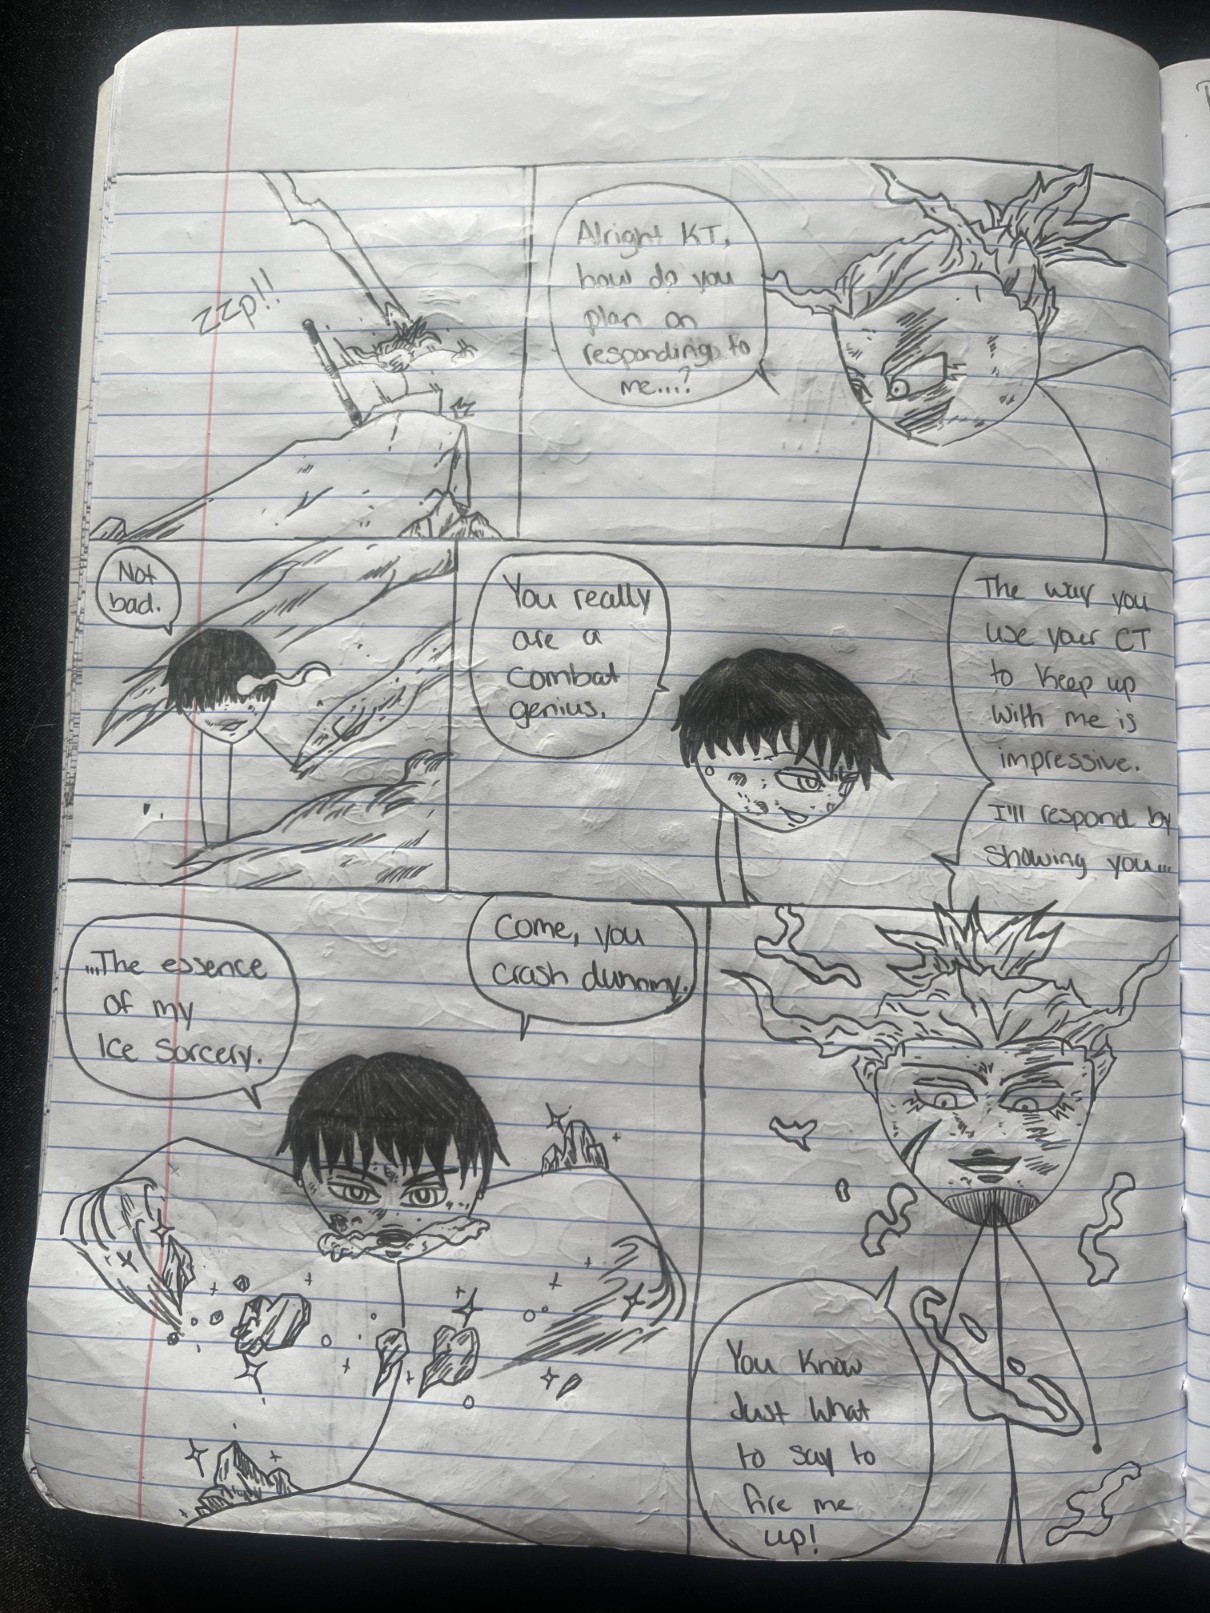 zzp!!
Alright KT,
how do you
plan on
responding to
me...?
Not
bad.
You really
are a
combat
genius.
The way you
use your CT
to keep up
with me is
impressive.
I'll respond by
Showing you...
...The essence
of my
Ice Sorcery.
Come, you
crash dummy.
You Know
Just What
to say to
fire me
up!